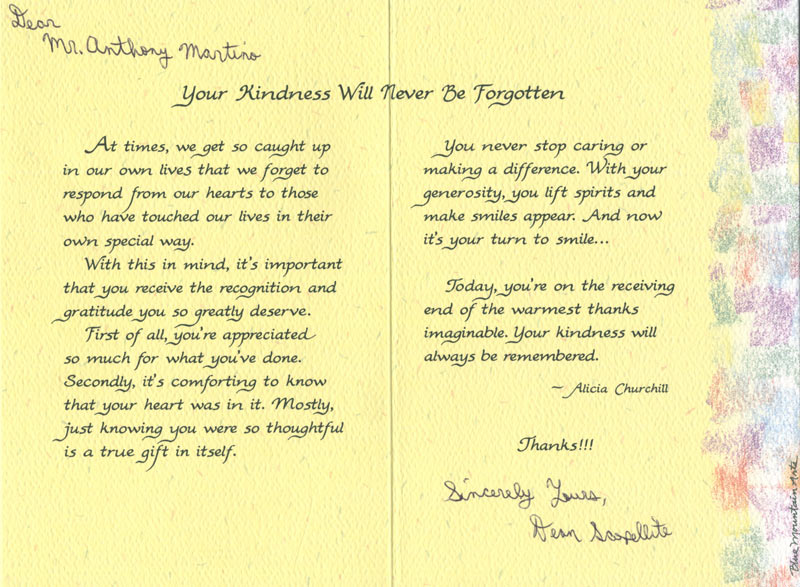 Dear
Mr. Anthony Martino
Your Kindness Will Never Be Forgotten
At times, we get so caught up
in our own lives that we forget to
respond from our hearts to those
who have touched our lives in their
own special way.
With this in mind, it's important
that you receive the recognition and
gratitude you so greatly deserve.
First of all, you're appreciated
so much for what you've done.
Secondly, it's comforting to know
that your heart was in it. Mostly,
just knowing you were so thoughtful
is a true gift in itself.
You never stop caring or
making a difference. With your
generosity, you lift spirits and
make smiles appear. And now
it's your turn to smile...
Today, you're on the receiving
end of the warmest thanks
imaginable. Your kindness will
always be remembered.
~ Alicia Churchill
Thanks!!!
Sincerely Yours,
Dean
Blue Mountain Arts